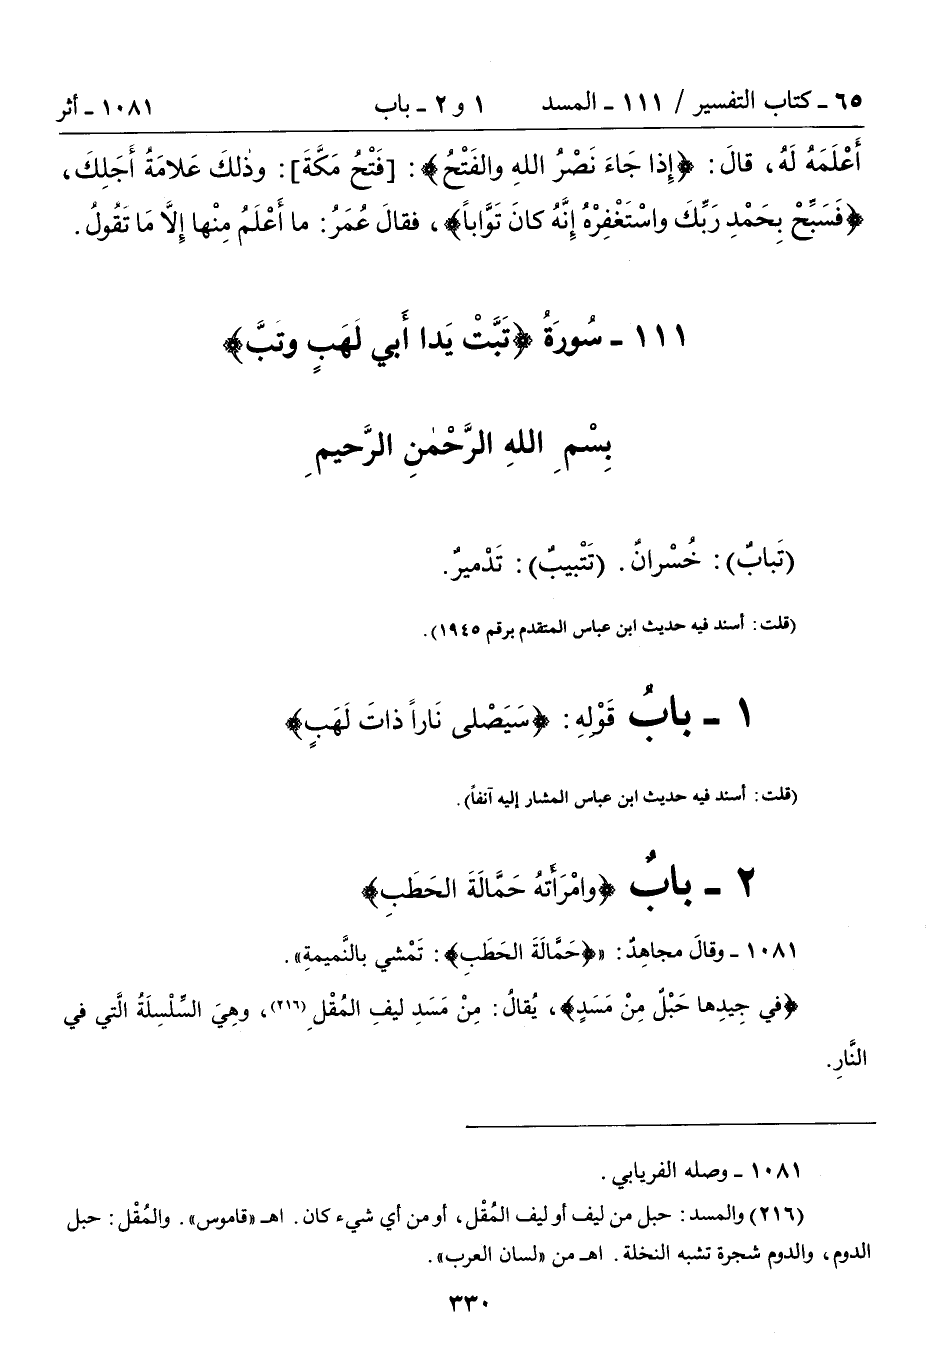 ٦٥ ـ كتاب التفسير / ١١١ ـ المسد ١ و ٢ ـ باب ١٠٨١ ـ أثر
أَعْلَمَهُ لَهُ، قالَ: ﴿إِذا جَاءَ نَصْرُ اللهِ والفَتْحُ﴾: [فَتْحُ مَكَّةَ]: وذٰلكَ عَلامَةُ أَجَلِكَ،
﴿فَسَبِّحْ بِحَمْدِ رَبِّكَ واسْتَغْفِرْهُ إِنَّهُ كانَ تَوَّاباً﴾، فقالَ عُمَرُ: ما أَعْلَمُ مِنْها إِلَّا مَا تَقُولُ.
١١١ ـ سُورَةُ ﴿تَبَّتْ يَدا أَبي لَهَبٍ وتَبَّ﴾
بِسْمِ اللهِ الرَّحْمٰنِ الرَّحيمِ
(تَبابٌ): خُسْرانٌ. (تَتْبيبٌ): تَدْميرٌ.
(قلت: أسند فيه حديث ابن عباس المتقدم برقم ١٩٤٥).
١ ـ بابُ قَوْلِهِ: ﴿سَيَصْلى نَاراً ذاتَ لَهَبٍ﴾
(قلت: أسند فيه حديث ابن عباس المشار إليه آنفاً).
٢ ـ بابُ ﴿وامْرَأَتُهُ حَمَّالَةَ الحَطَبِ﴾
١٠٨١ ـ وقالَ مجاهِدٌ: «﴿حَمَّالَةَ الحَطَبِ﴾: تَمْشي بالنَّميمةِ».
﴿في جِيدِها حَبْلٌ مِنْ مَسَدٍ﴾، يُقالُ: مِنْ مَسَدِ ليفِ المُقْلِ(٢١٦)، وهِيَ السِّلْسِلَةُ الَّتي في
النَّارِ.
١٠٨١ ـ وصله الفريابي.
(٢١٦) والمسد: حبل من ليف أو ليف المُقْل، أو من أي شيء كان. اهـ «قاموس». والمُقْل: حبل
الدوم، والدوم شجرة تشبه النخلة. اهـ من «لسان العرب».
٣٣٠